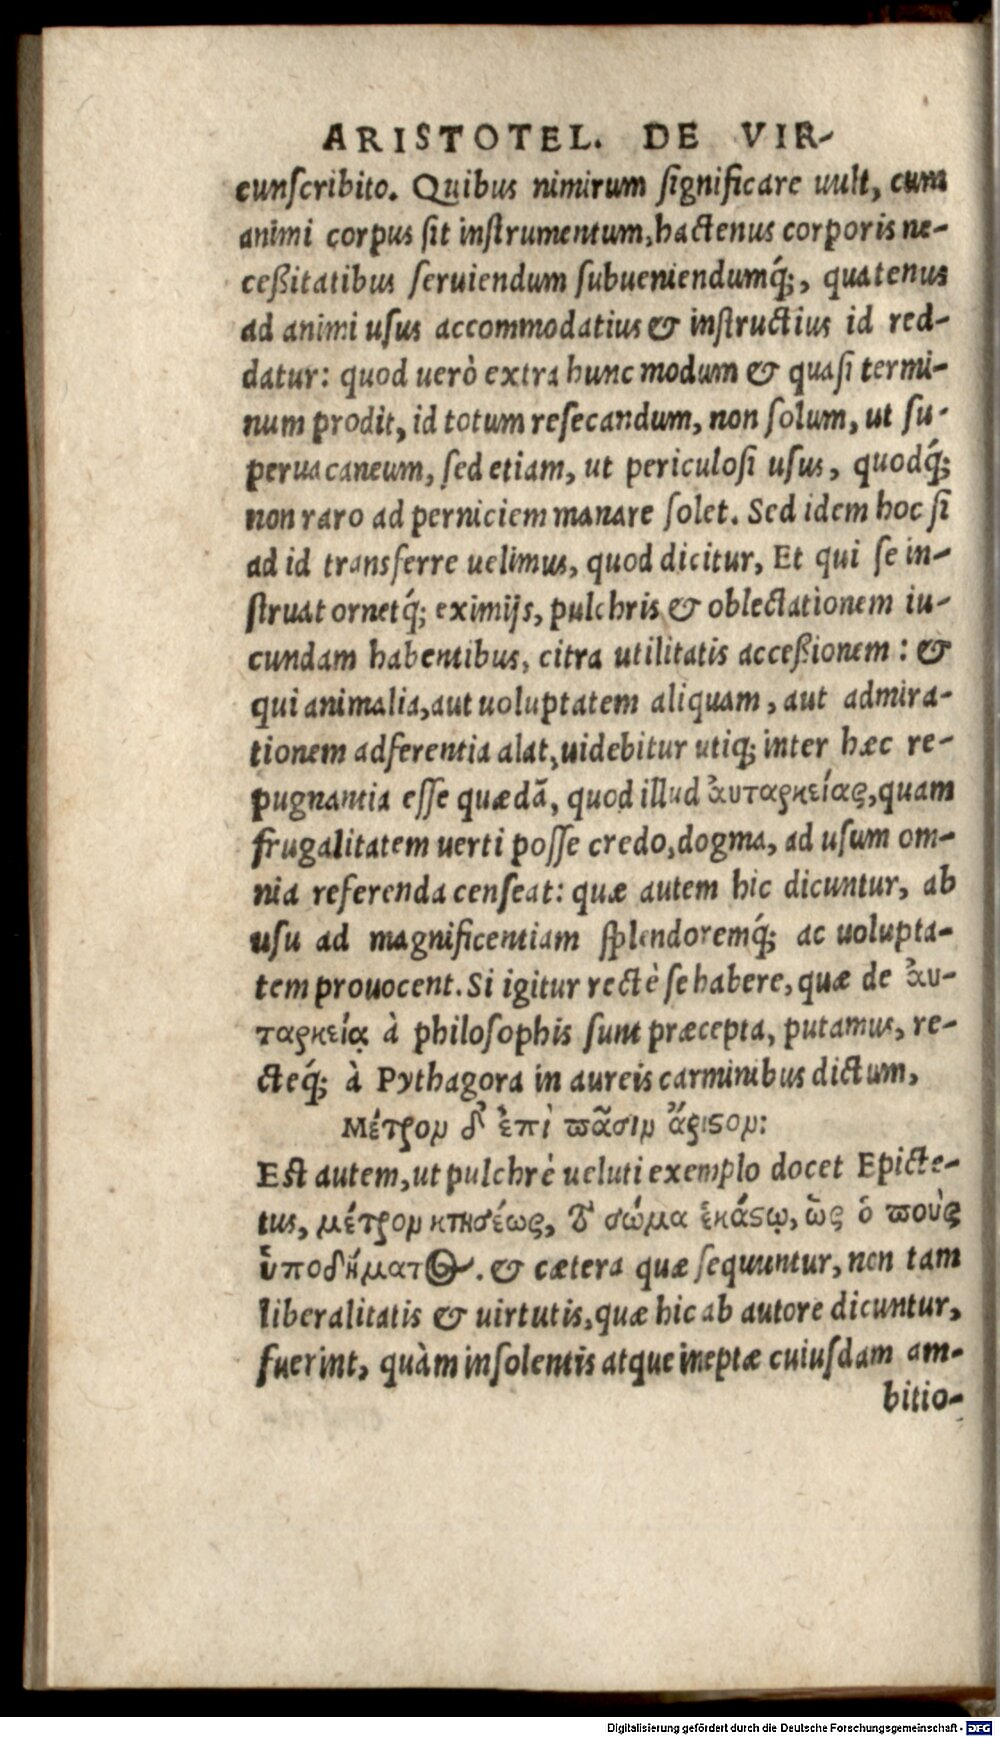 ARISTOTEL. DE VIR-
cunscribito. Quibus nimirum significare uult, cum
animi corpus sit instrumentum, hactenus corporis ne-
ceßitatibus seruiendum subueniendumq́;, quatenus
ad animi usus accommodatius & instructius id red-
datur: quod uerò extra hunc modum & quasi termi-
num prodit, id totum resecandum, non solum, ut su-
peruacaneum, sed etiam, ut periculosi usus, quodq́;
non raro ad perniciem manare solet. Sed idem hoc si
ad id transferre uelimus, quod dicitur, Et qui se in-
struat ornetq́; eximijs, pulchris & oblectationem iu-
cundam habentibus, citra utilitatis acceßionem: &
qui animalia, aut uoluptatem aliquam, aut admira-
tionem adferentia alat, uidebitur utiq; inter hæc re-
pugnantia esse quædã, quod illud ἀυταρκείας, quam
frugalitatem uerti posse credo, dogma, ad usum om-
nia referenda censeat: quæ autem hic dicuntur, ab
usu ad magnificentiam splendoremq́; ac uolupta-
tem prouocent. Si igitur rectè se habere, quæ de ἀυ-
ταρκείᾳ à philosophis sunt præcepta, putamus, re-
cteq́; à Pythagora in aureis carminibus dictum,
Μέτρον δ' ἐπὶ πᾶσιν ἄριςον:
Est autem, ut pulchrè ueluti exemplo docet Epicte-
tus, μέτρον κτησέως, τὸ σώμα ἑκάςῳ, ὣς ὁ ποὺς
ὑποδήματος. & cætera quæ sequuntur, non tam
liberalitatis & uirtutis, quæ hic ab autore dicuntur,
fuerint, quàm insolentis atque ineptæ cuiusdam am-
bitio-
Digitalisierung gefördert durch die Deutsche Forschungsgemeinschaft - DFG